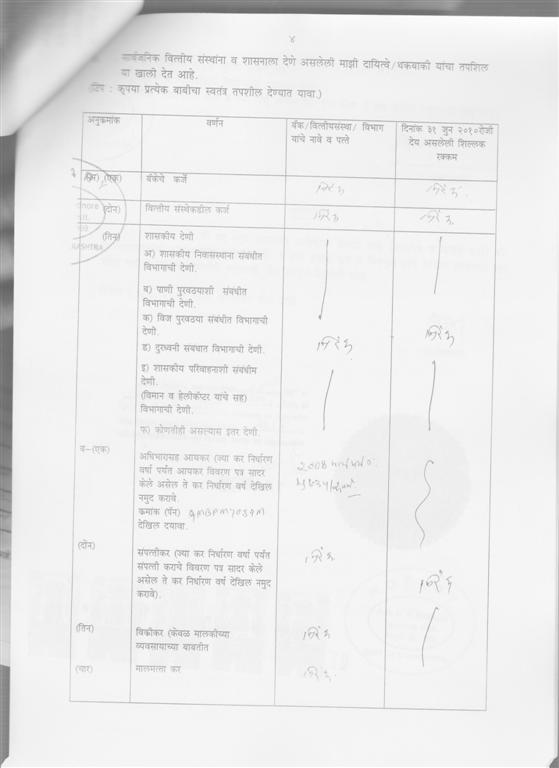 ४
सार्वजनिक वित्तीय संस्थांना व शासनाला देणे असलेली माझी दायित्वे/थकबाकी यांचा तपशिल
या खाली देत आहे.
(टिप : कृपया प्रत्येक बाबीचा स्वतंत्र तपशील देण्यात यावा.)
अनुक्रमांक
वर्णन
बँक/वित्तीयसंस्था/ विभाग
यांचे नावे व पत्ते
दिनांक ३१ जुन २०१०रोजी
देय असलेली शिल्लक
रक्कम
(एक)
बँकेचे कर्जे
निरंक
निरंक
(दोन)
वित्तीय संस्थेकडील कर्ज
निरंक
निरंक
(तिन)
शासकीय देणी
अ) शासकीय निवासस्थाना संबंधीत
विभागाची देणी.
ब) पाणी पुरवठयाशी संबंधीत
विभागाची देणी.
क) विज पुरवठया संबंधीत विभागाची
देणी.
ड) दुरध्वनी संबधात विभागाची देणी.
निरंक
निरंक
इ) शासकीय परिवाहनाशी संबंधीम
देणी.
(विमान व हेलीकॉप्टर यांचे सह)
विभागाची देणी.
फ) कोणतीही असल्यास इतर देणी.
ब-(एक)
अधिभारासह आयकर (ज्या कर निर्धारण
वर्षा पर्यंत आयकर विवरण पत्र सादर
केले असेल ते कर निर्धारण वर्ष देखिल
नमुद करावे.
क्रमांक (पॅन)
देखिल दयावा.
(दोन)
संपत्तीकर (ज्या कर निर्धारण वर्षा पर्यंत
संपत्ती कराचे विवरण पत्र सादर केले
असेल ते कर निर्धारण वर्ष देखील नमुद
करावे).
निरंक
निरंक
(तिन)
विक्रीकर (केवळ मालकीच्या
व्यवसायाच्या बाबतीत
निरंक
(चार)
मालमत्ता कर
निरंक